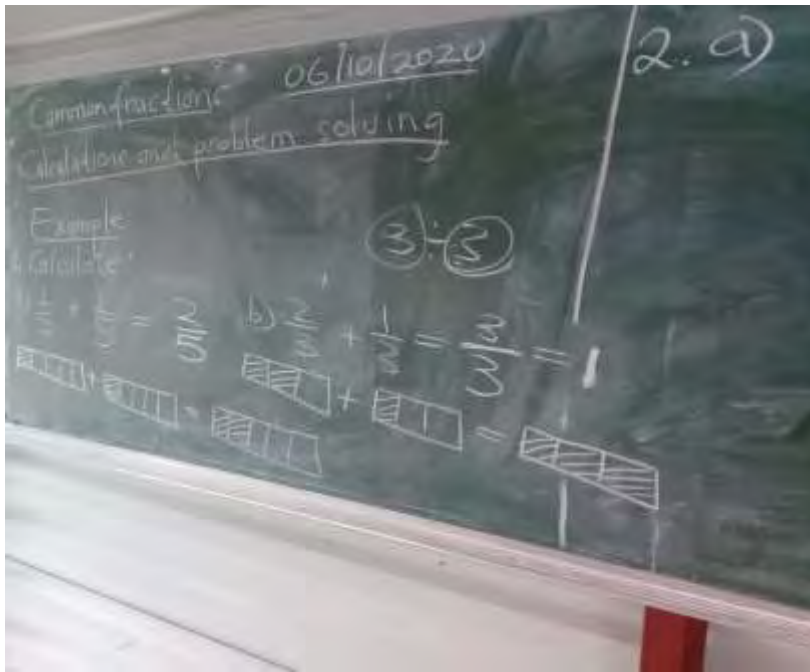 Common fractions 06/10/2020
Calculations and problem solving
Example
Calculate:
3 ÷ 3
1/5 + 1/5 = 2/5 b) 2/3 + 1/3 = 3/3 = 1
+ = + =
2. a)